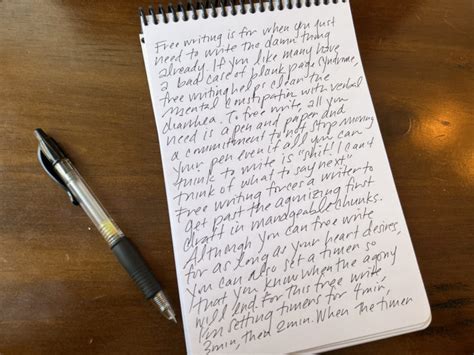 Free writing is for when you just
need to write the damn thing
already. If you like many have
a bad case of blank page syndrome,
free writing helps clear the
mental constipation with verbal
diarrhea. To free write, all you
need is a pen and paper and
a commitment to not stop moving
your pen even if all you can
think to write is "shit! I can't
think of what to say next."
Free writing forces a writer to
get past the agonizing first
draft in manageable chunks.
Although you can free write
for as long as your heart desires,
you can also set a timer so
that you know when the agony
will end. For this free write,
I'm setting timers for 4min,
3min, then 2min. When the timer